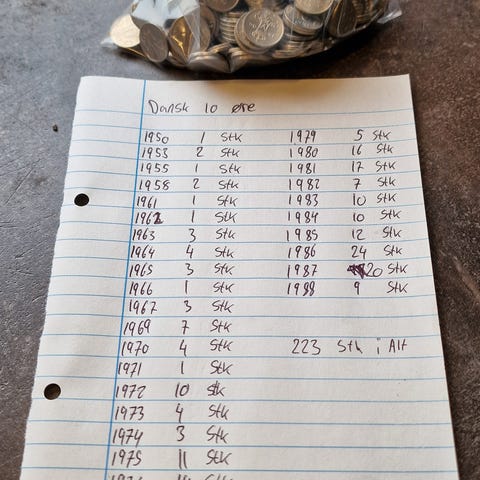 Dansk 10 øre
1950 1 Stk 1979 5 Stk
1953 2 Stk 1980 16 Stk
1955 1 Stk 1981 17 Stk
1958 2 Stk 1982 7 Stk
1961 1 Stk 1983 10 Stk
1962 1 Stk 1984 10 Stk
1963 3 Stk 1985 12 Stk
1964 4 Stk 1986 24 Stk
1965 3 Stk 1987 20 Stk
1966 1 Stk 1988 9 Stk
1967 3 Stk
1969 7 Stk
1970 4 Stk 223 Stk i Alt
1971 1 Stk
1972 10 Stk
1973 4 Stk
1974 3 Stk
1975 11 Stk